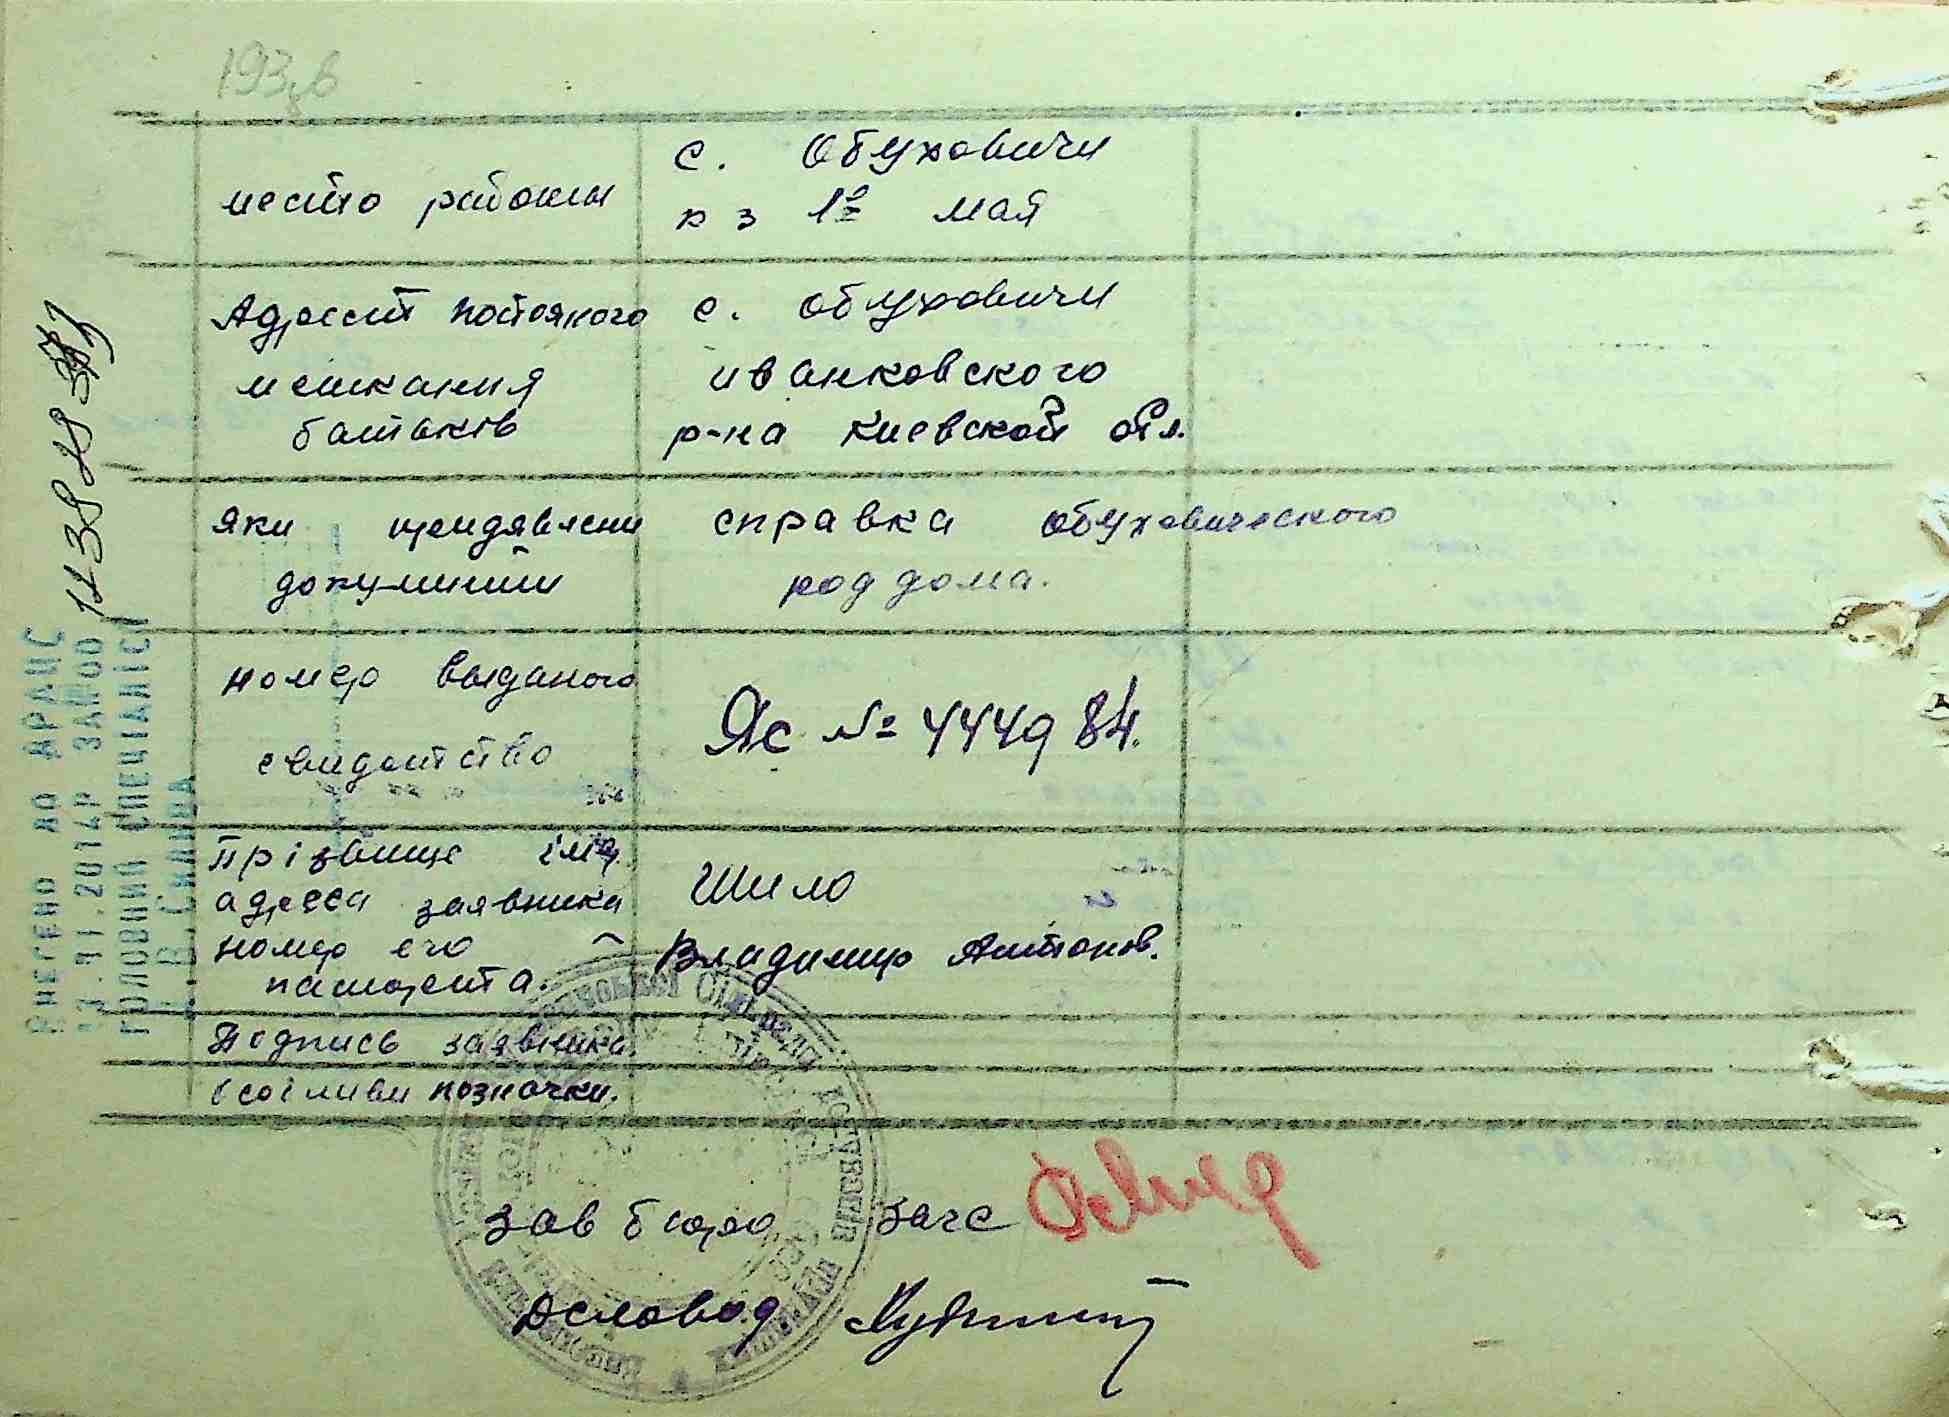 место работы
с. Обуховичи
к з 1º мая
Адрессит постояного
мешкания
батьков
с. Обуховичи
иванковского
р-на Киевской обл.
яки
документи
справка обуховического
род дома.
номер выданого
свидотство
Яс № 444984.
Прізвище імя,
адресса заявника
номер его
пашпорта.
Шило
Владимир Антонов.
Подпись заявника
осотливи позночки.
зав бюро загс
Деловод
ВНЕСЕНО ДО ДРАЦС
.11.2014Р ЗА №00
ГОЛОВНИЙ СПЕЦІАЛІСТ